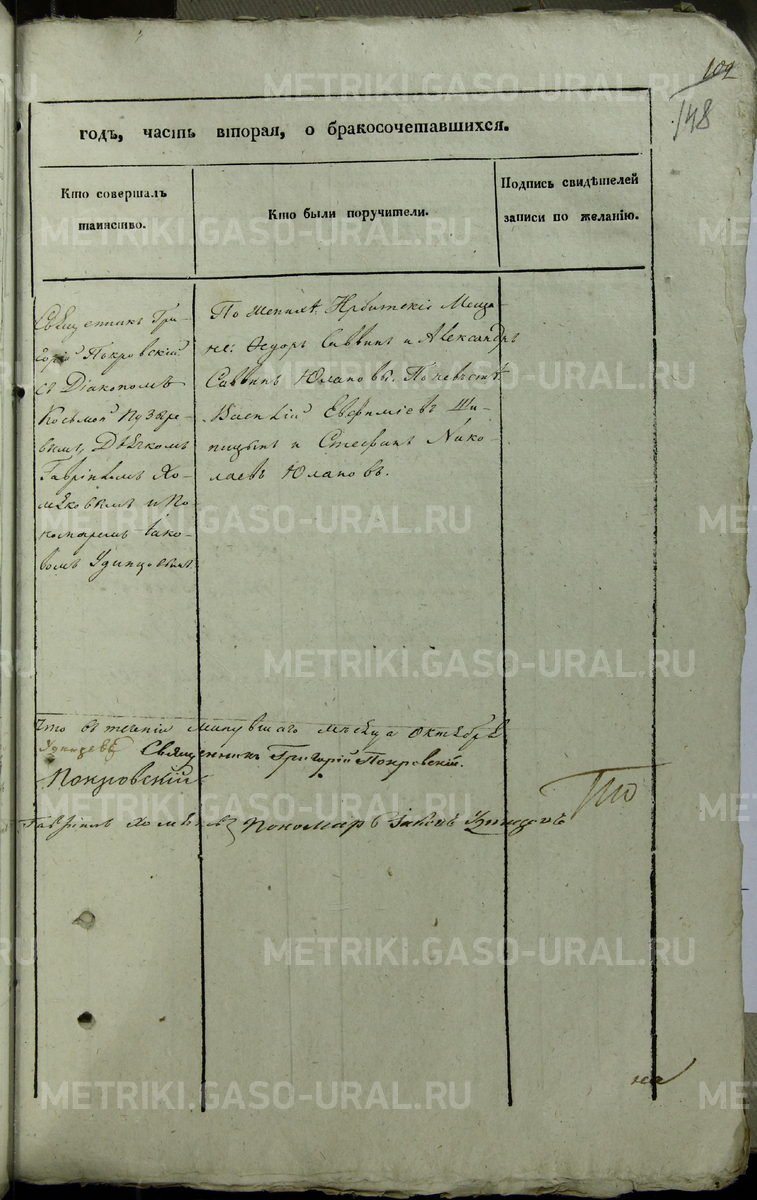 102
148
годъ, часть вторая, о бракосочетавшихся.
Кто совершалъ
таинство.
Кто были поручители.
Подпись свидѣтелей
записи по желанію.
Священникъ Гри-
горій Покровскій
съ Діакономъ
Косьмой Пузыре-
вымъ, Дьячкомъ
Гавріиломъ Хо-
мяковымъ и По-
номаремъ Іако-
вомъ Удинцовымъ
По женихѣ: Ирбитскіе Меща-
не: Ѳедоръ Саввинъ и Александръ
Саввинъ Юлановы. По невѣстѣ
Василій Евфиміевъ Ши-
пицынъ и Стефанъ Нико-
лаевъ Юлановъ.
что въ теченіи минувшаго мѣсяца Октября
Священникъ Григорій Покровскій.
Покровскій
Гавріилъ Хомяковъ Пономарь Іаковъ Удинцовъ
METRIKI.GASO-URAL.RU